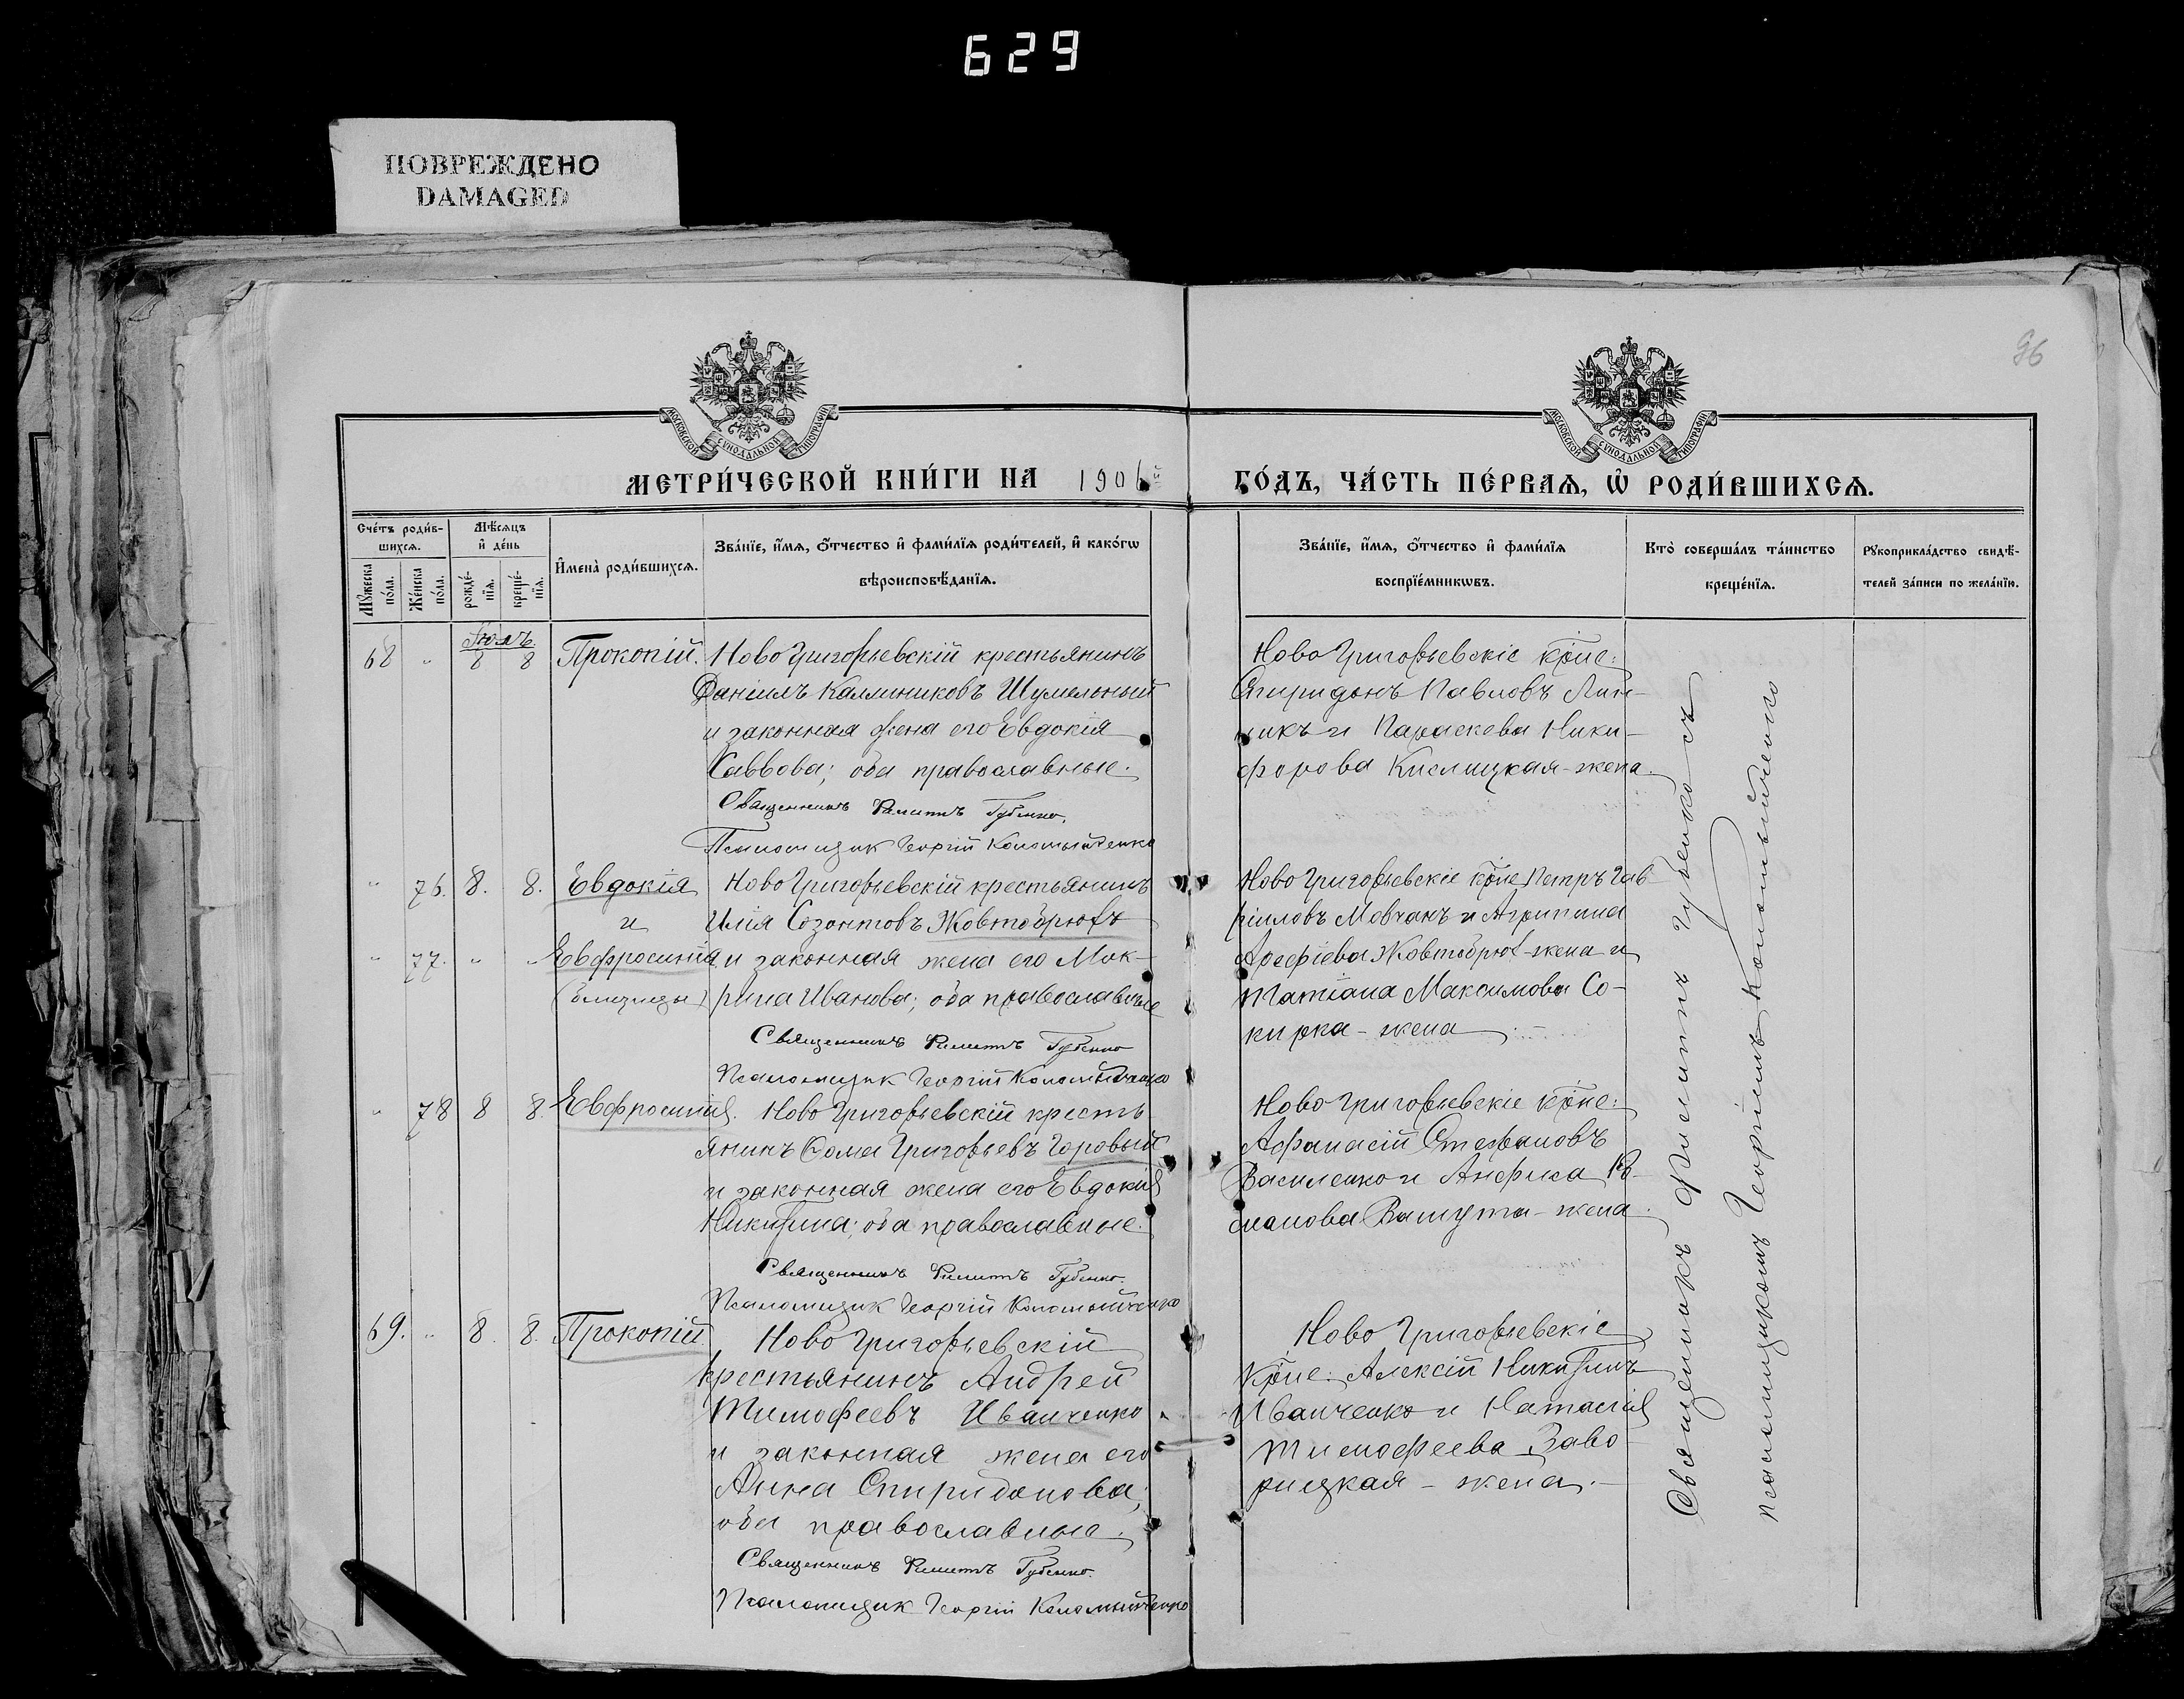 629
ПОВРЕЖДЕНО
DAMAGED
96
МОСКОВСКОЙ СѴНОДАЛЬНОЙ ТИПОГРАФІИ
МОСКОВСКОЙ СѴНОДАЛЬНОЙ ТИПОГРАФІИ
МЕТРИ́ЧЕСКОЙ КНИ́ГИ НА 1906й
ГО́ДЪ, ЧА́СТЬ ПЕ́РВАѦ, Ѡ РОДИ́ВШИХСѦ.
Сче́тъ роди́в-
шихсѧ.
Мꙋ́жеска по́ла.
Же́нска по́ла.
Мѣ́сѧцъ
и҆ де́нь
рожде́-
нїѧ.
креще́-
нїѧ.
И҆мена̀ роди́вшихсѧ.
Зва́нїе, и҆́мѧ, ѻ҆́тчество и҆ фами́лїѧ роди́телей, и҆ како́гѡ
вѣроисповѣ́данїѧ.
Зва́нїе, и҆́мѧ, ѻ҆́тчество и҆ фами́лїѧ
воспрїе́мникѡвъ.
Кто̀ соверша́лъ та́инство
креще́нїѧ.
Рꙋкоприкла́дство свидѣ́-
телей за́писи по жела́нїю.
Іюль
68 " 8 8 Прокопій. Ново Григорьевскій крестьянинъ
Даніилъ Каллиниковъ Шумельный
и законная жена его Евдокія
Саввова; оба православные.
Священникъ Филиппъ Губенко.
Псаломщик Георгій Коломыйченко
Ново Григорьевскіе кр̃не:
Спиридонъ Павловъ Лин-
никъ и Параскева Ники-
форова Кислицкая - жена.
" 76. 8. 8. Евдокія
и
" 77. " " Евфросинія
(близнецы)
Ново Григорьевскій крестьянинъ
Илія Созонтовъ Жовтобрюхъ
и законная жена его Мок-
рина Иванова; оба православные
Священникъ Филиппъ Губенко
Псаломщик Георгій Коломыйченко
Ново Григорьевскіе кр̃не Петръ Гав-
ріиловъ Мовчанъ и Агрипина
Арефіева Жовтобрюх - жена и
Татіана Максимова Со-
кирка - жена
" 78 8 8. Евфросинія. Ново Григорьевскій кресть-
янинъ Ѳома Григорьевъ Горовый
и законная жена его Евдокія
Никитина; оба православные.
Священникъ Филиппъ Губенко.
Псаломщик Георгій Коломыйченко
Ново Григорьевскіе кр̃не:
Афанасій Стефановъ
Василенко и Анфиса Ро-
манова Вашута - жена.
69. " 8. 8. Прокопій Ново Григорьевскій
крестьянинъ Андрей
Тимофеевъ Иванченко
и законная жена его
Анна Спиридонова;
оба православные.
Священникъ Филиппъ Губенко.
Псаломщик Георгій Коломыйченко
Ново Григорьевскіе
кр̃не: Алексій Никитинъ
Иванченко и Наталія
Тимофеева Заво-
рицкая - жена. -
Священникъ Филиппъ Губенко съ
псаломщикомъ Георгіемъ Коломыйченко